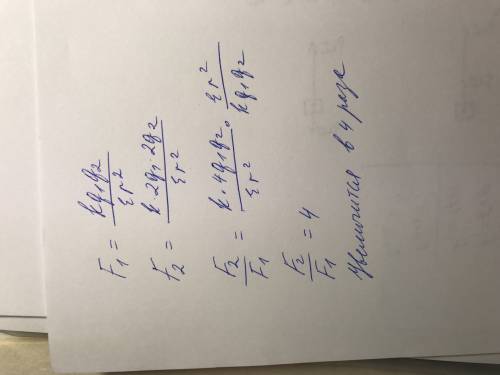 F₁ = kq₁q₂ / εr²
F₂ = k·2q₁·2q₂ / εr²
F₂ / F₁ = k·4q₁q₂ / εr² · εr² / kq₁q₂
F₂ / F₁ = 4
Увеличится в 4 раза